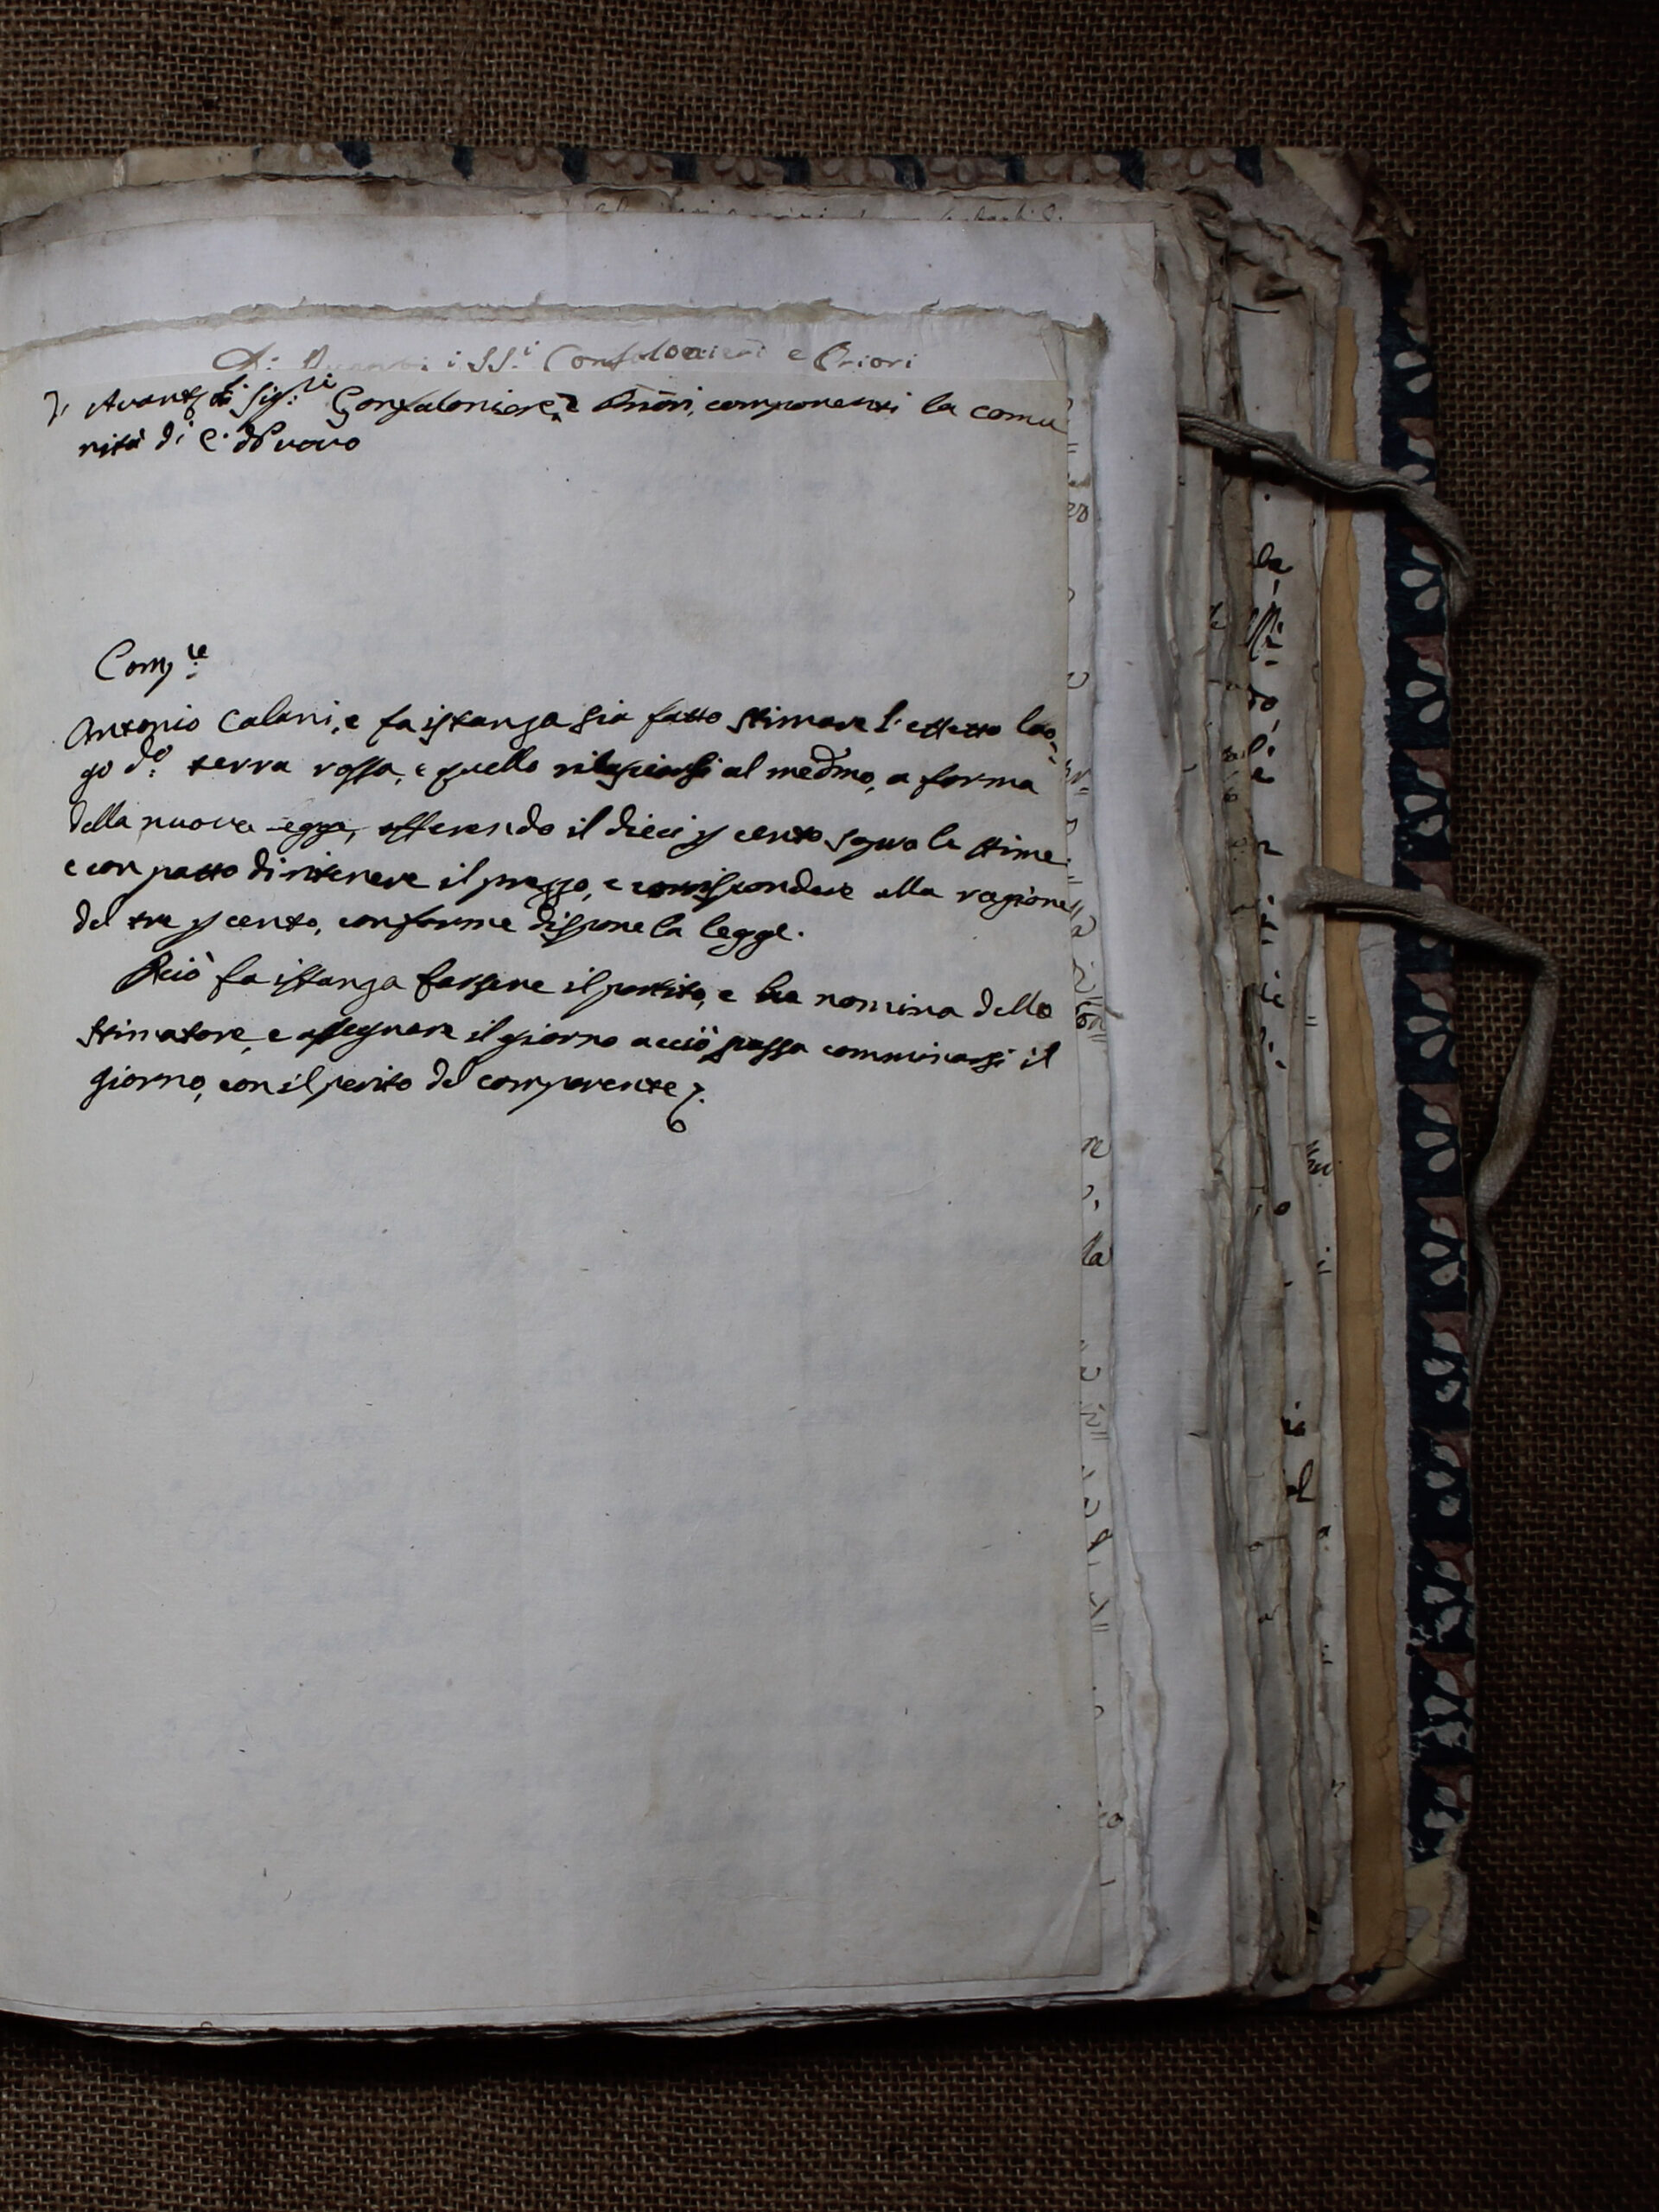 A: Avanti i SS.i Confalonieri e Priori
Avanti i Sig:ri Gonfaloniere, e Priori, componenti la comu
nità di C. Nuovo
Comp.e
Antonio Calani, e fa istanza sia fatto stimare l'effetto luo-
go d.o terra rossa, e quello rilasciarsi al medmo, a forma
della nuova legge, offerendo il dieci p cento sopra la stima
e con patto di ritenere il prezzo, e corrispondere alla ragione
del tre p cento, conforme dispone la legge.
Perciò fa istanza farsene il partito, e la nomina dello
stimatore, e assegnare il giorno acciò possa comminarsi il
giorno, con il perito del comparente